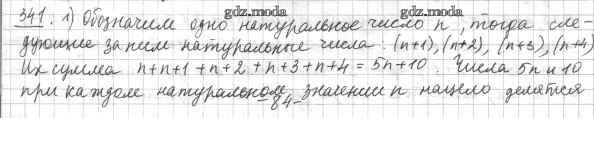 gdz.moda gdz.moda
341. 1) Обозначим одно натуральное число n, тогда сле-
дующие за ним натуральные числа: (n+1), (n+2), (n+3), (n+4)
Их сумма n+n+1+n+2+n+3+n+4 = 5n+10. Числа 5n и 10
при каждом натуральном значении n нацело делятся
-84-